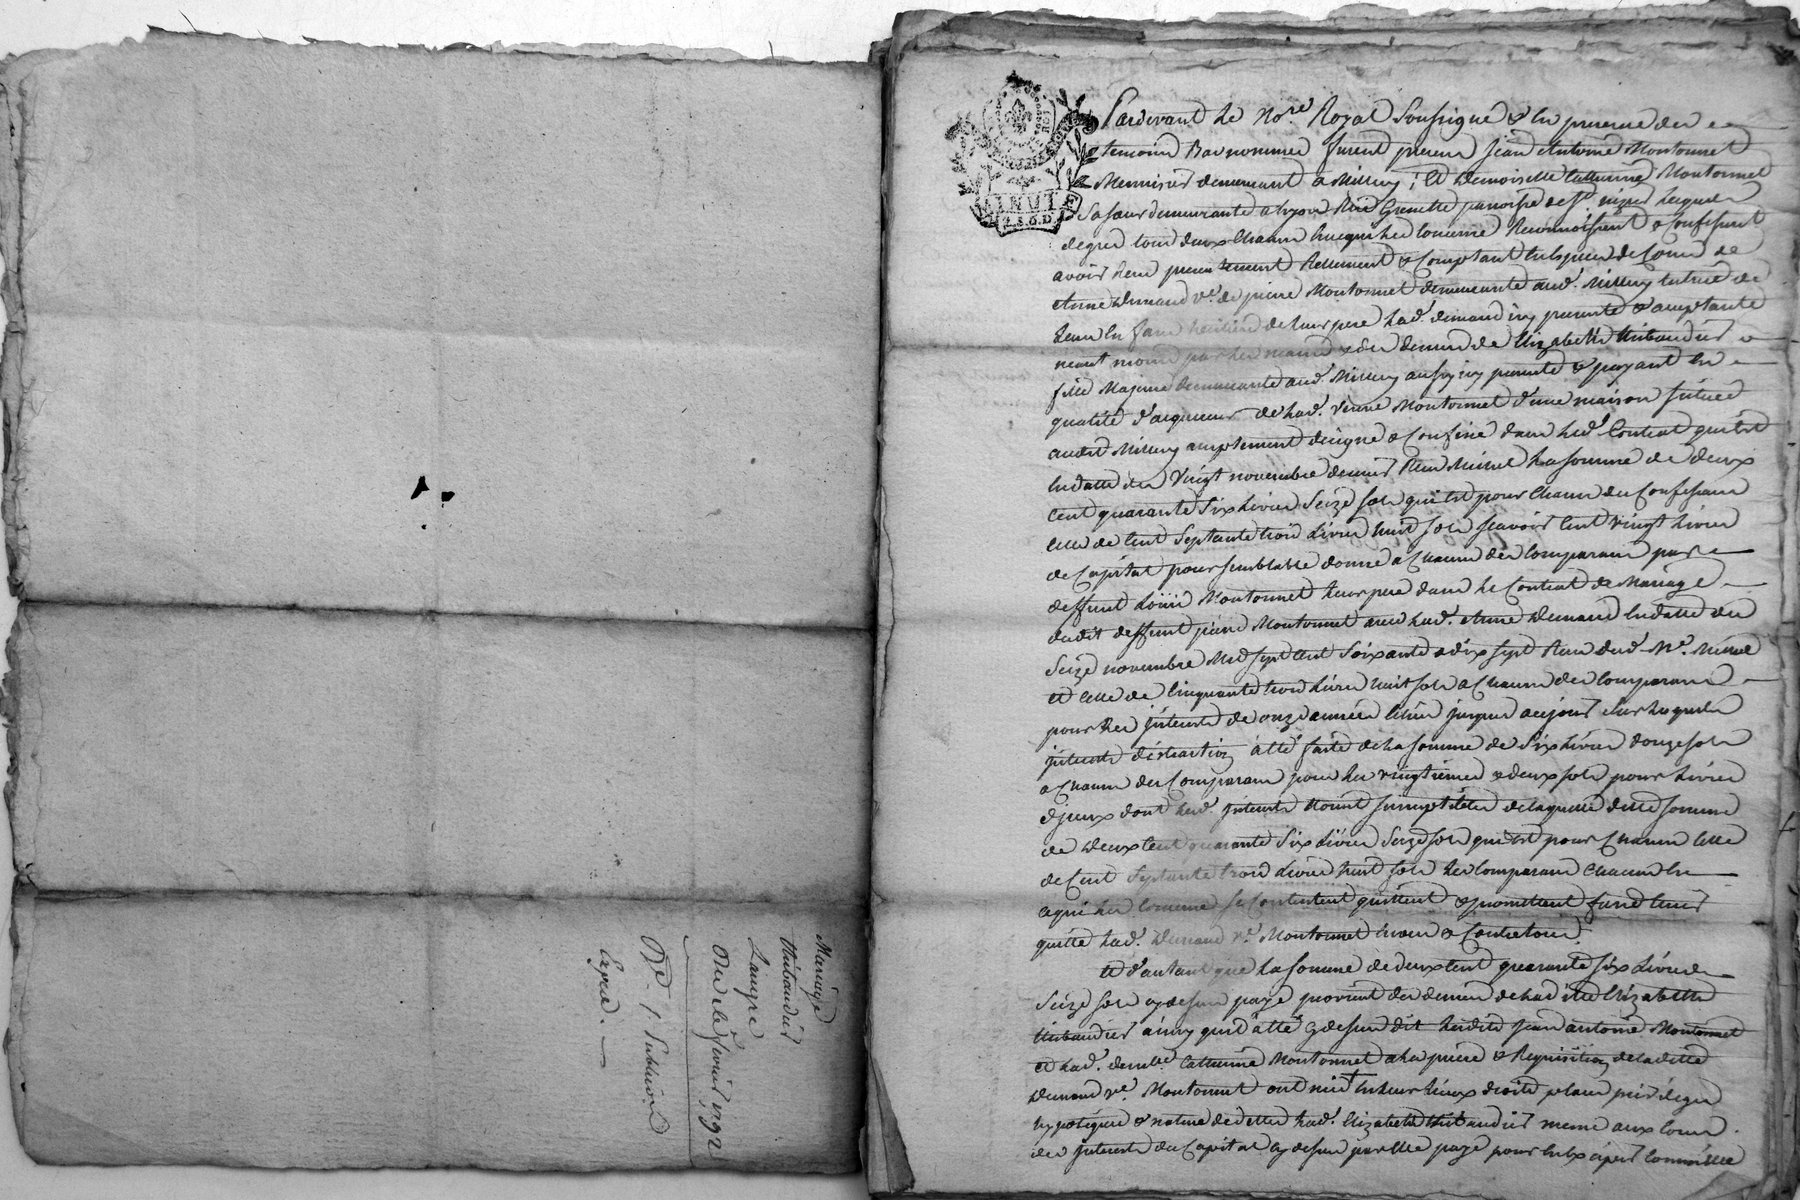 Mariage
thibaudier
Laugre
Du 1792
Expedié
MINUTE
Pardevant le No.re Royal Soussigné & en presence des
temoins bas nommés furent presens Jean Antoine Montonnet
Menuisier demeurant a Millery ; et demoiselle Catherine Montonnet
sa sœur demeurante a Lyon Rue Grenette paroisse de St. nizier lesquels
de gré tous deux chacun en ce qui les concerne Reconnoissent & confessent
avoir Reçu presentement Reellement & comptant en especes de cours de
Anne Durand v.e de pierre Montonnet demeurante aud. Millery tutrice de
leurs enfans heritiers de leur pere lad. durand icy presente & acceptante
neant moins par les mains & des deniers de Elizabeth thibaudier
fille Majeure demeurante aud. Millery aussy icy presente & payant en
qualité d'acquereur de lad. veuve Montonnet d'une maison située
audit Millery amplement designé & confiné dans led. Contrat qui est
en datte du Vingt novembre dernier Reçu Michel la somme de deux
cent quarante six Livres seize sols qui est pour chacun des confessans
celle de cent septante trois Livres huit sols scavoir cent vingt Livres
de capital pour semblable donné a chacun des comparans par
deffunt Loüis Montonnet leur pere dans le Contrat de Mariage
dudit deffunt pierre Montonnet avec lad. Anne Durand en datte du
seize novembre Mil sept cent soixante & dix sept Reçu dud. M.e Michel
et celle de cinquante trois Livres huit sols a chacun des comparans
pour les interets de onze années echus jusques a ce jour sur lesquels
interets distraction a été faite de la somme de six Livres douze sols
a chacun des comparans pour les vingtiemes & deux sols pour Livres
d'iceux dont led. interets etoient susceptibles de laquelle ditte somme
de deux cent quarante six Livres seize sols qui est pour chacun celle
de Cent septante trois Livres huit sols les comparans chacun en
ce qui les concerne se contentent quittent & promettent faire tenir
quitte lad. Durand v.e Montonnet envers & contre tous.
et d'autant que la somme de deux cent quarante six Livres
seize sols cy dessus payé provient des deniers de lad. d.lle Elizabeth
thibaudier ainsy qu'il a été cy dessus dit lesdits Jean antoine Montonnet
et lad. dem.lle Catherine Montonnet a la priere & Requisition de ladite
Durand v.e Montonnet ont mis en leurs Lieux droits place privileges
hypoteques & nature de dettes lad. Elizabeth thibaudier meme aux cours
des interets du Capital cy dessus par elle payé pour en